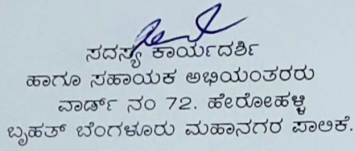 ಸದಸ್ಯ ಕಾರ್ಯದರ್ಶಿ
ಹಾಗೂ ಸಹಾಯಕ ಅಭಿಯಂತರರು
ವಾರ್ಡ್ ನಂ 72. ಹೇರೋಹಳ್ಳಿ
ಬೃಹತ್ ಬೆಂಗಳೂರು ಮಹಾನಗರ ಪಾಲಿಕೆ.